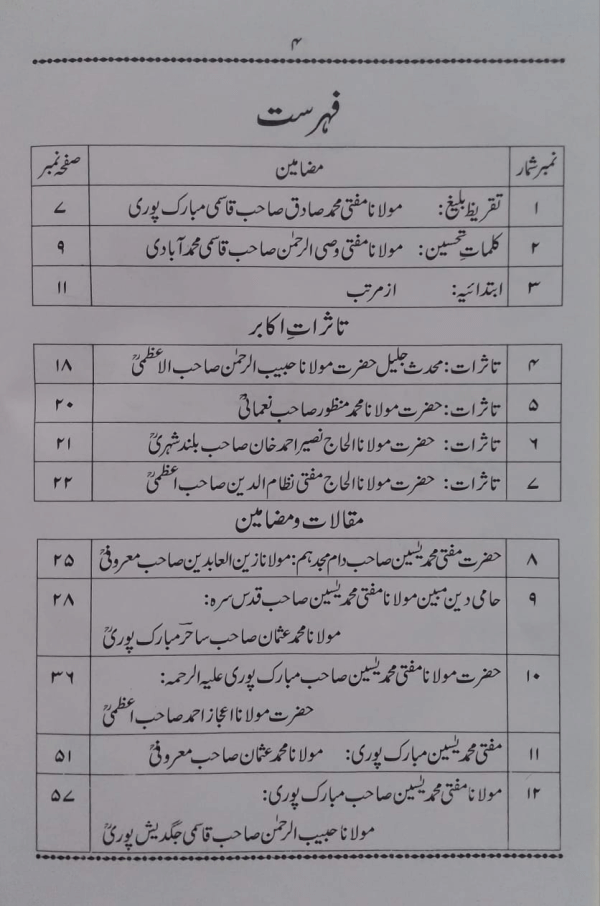 ۴
فہرست
نمبر شمار مضامین صفحہ نمبر
۱ تقریظ بلیغ: مولانا مفتی محمد صادق صاحب قاسمی مبارک پوری ۷
۲ کلماتِ تحسین: مولانا مفتی وصی الرحمٰن صاحب قاسمی محمد آبادی ۹
۳ ابتدائیہ: از مرتب ۱۱
تاثراتِ اکابر
۴ تاثرات: محدث جلیل حضرت مولانا حبیب الرحمٰن صاحب الاعظمیؒ ۱۸
۵ تاثرات: حضرت مولانا محمد منظور صاحب نعمانیؒ ۲۰
۶ تاثرات: حضرت مولانا الحاج نصیر احمد خان صاحب بلند شہریؒ ۲۱
۷ تاثرات: حضرت مولانا الحاج مفتی نظام الدین صاحب اعظمیؒ ۲۲
مقالات و مضامین
۸ حضرت مفتی محمد یٰسین صاحب دام مجدہم: مولانا زین العابدین صاحب معروفیؒ ۲۵
۹ حامی دین مبین مولانا مفتی محمد یٰسین صاحب قدس سرہ: ۲۸
مولانا محمد عثمان صاحب ساحرؔ مبارک پوریؒ
۱۰ حضرت مولانا مفتی محمد یٰسین صاحب مبارک پوری علیہ الرحمہ: ۳۶
حضرت مولانا اعجاز احمد صاحب اعظمیؒ
۱۱ مفتی محمد یٰسین مبارک پوری: مولانا محمد عثمان صاحب معروفیؒ ۵۱
۱۲ مولانا مفتی محمد یٰسین صاحب مبارک پوری: ۵۷
مولانا حبیب الرحمٰن صاحب قاسمی جگدیش پوریؒ